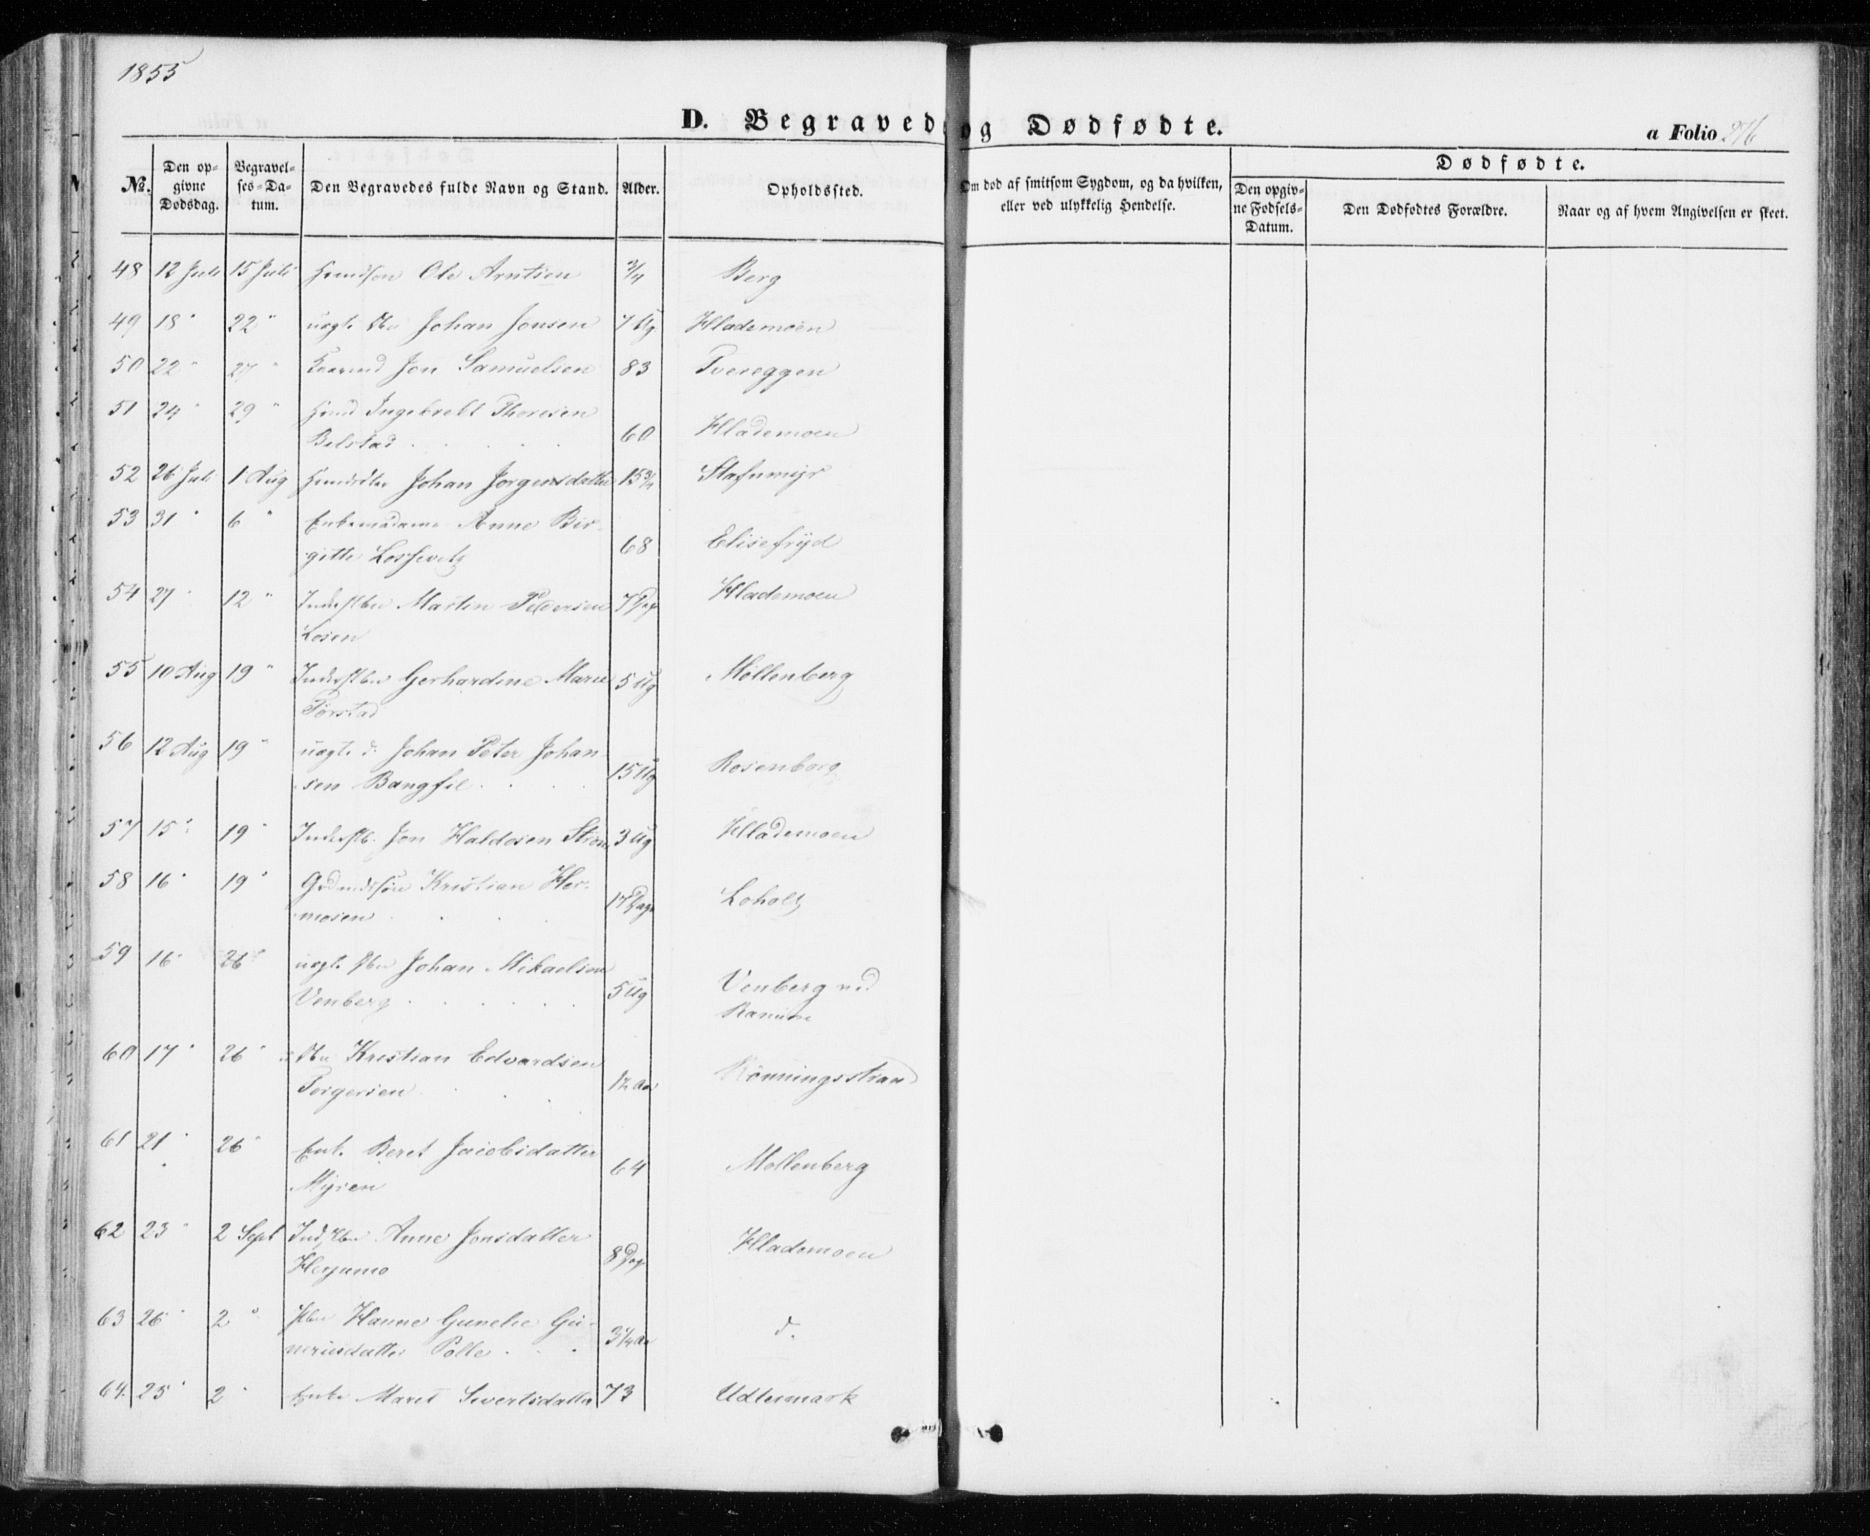 1855
D. Begravede og Dødfødte.
a Folio 276
Dødfødte.
No. Den opgivne Dødsdag. Begravelses-Datum. Den Begravedes fulde Navn og Stand. Alder. Opholdssted. Om død af smitsom Sygdom, og da hvilken, eller ved ulykkelig Hendelse. Den opgivne Fødsels-Datum. Den Dødfødtes Forældre. Naar og af hvem Angivelsen er skeet.
48 12 Juli 15 Juli Huusmdsøn Ole Arntsen 3/4 Berg
49 18 " 22 " uægte Johan Jonsen 7 Ug. Hlademoen
50 22 " 27 " Jon Samuelsen 83 Tvereggen
51 24 " 29 " Ingebrelt Thoresen
Belstad 60 Hlademoen
52 26 Juli 1 Aug Johan Jørgensdatter 15 3/4 Stafnmyr
53 31 " 6 " Enkemadame Anne Bir-
gitte 68 Elisefryd
54 27 " 12 " Martin Pedersen 7 Dage Hlademoen
Losen
55 10 Aug 19 " Gerhardine Marie 5 Ug Möllenberg
Torstad
56 12 Aug 19 " uægte d: Johan Peter Johan-
sen Bangfil 15 Ug Rosenborg
57 15 " 19 " Jon Haldosen Strøm 3 Ug Hlademoen
58 16 " 19 " Kristian Her-
mosen 17 Dage Loholt
59 16 " 26 " uægte Johan Mikaelsen
Venberg 5 Ug Venberg ved
Ranum
60 17 " 26 " Kristian Edvardsen
Torgersen 12 Aar Rönningsstrand
61 21 " 26 " Enke Beret Jacobsdatter
Myren 64 Mollenberg
62 23 " 2 Sept Anne Jonsdatter
8 Dage Hlademoen
63 26 " 2 " Hanne Gunelie Gu-
neriusdatter Polle 3 1/4 Aar d.
64 25 " 2 " Enke Maret Sivertsdatter 73 Udlermark